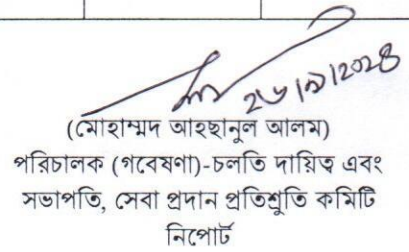 ২৬/৯/২০২৪
(মোহাম্মদ আহছানুল আলম)
পরিচালক (গবেষণা)-চলতি দায়িত্ব এবং
সভাপতি, সেবা প্রদান প্রতিশ্রুতি কমিটি
নিপোর্ট